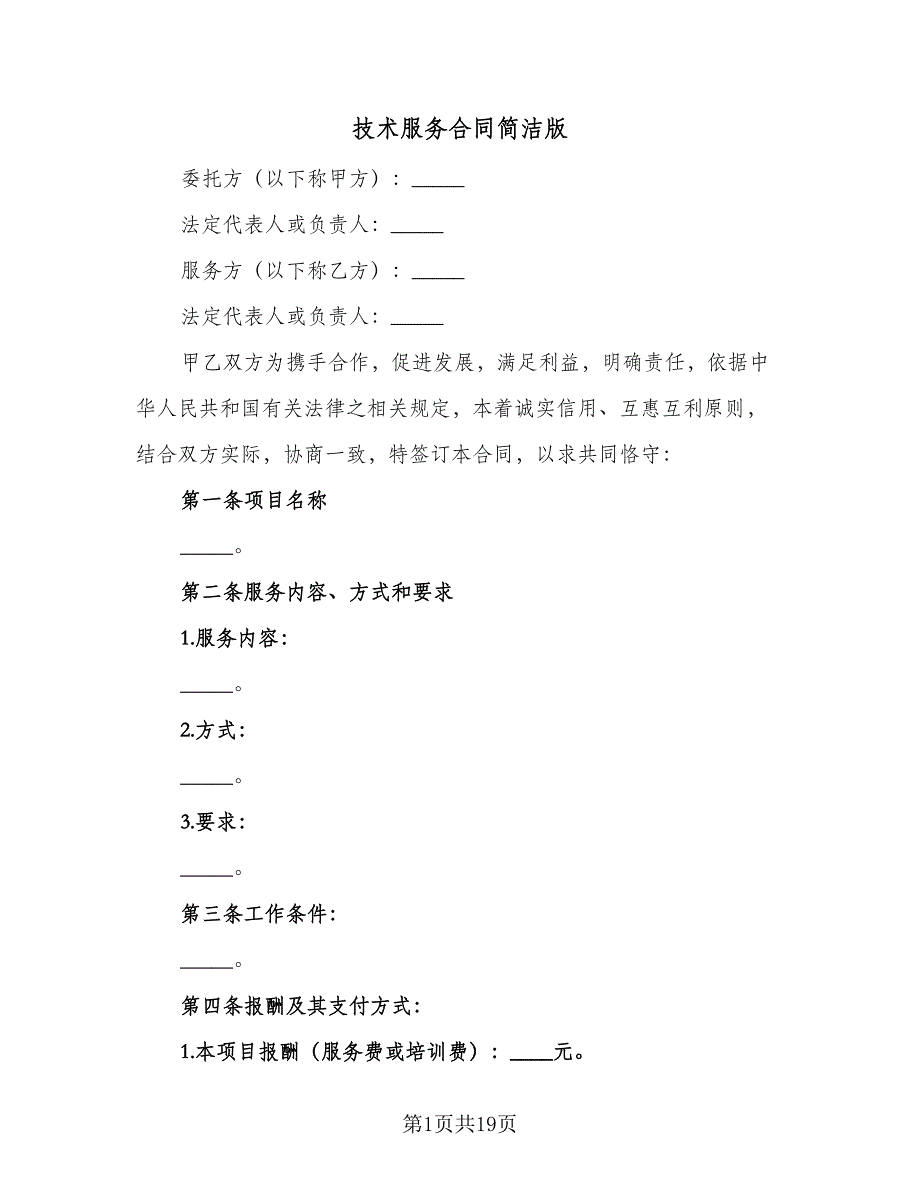 技术服务合同简洁版
委托方（以下称甲方）：_____
法定代表人或负责人：_____
服务方（以下称乙方）：_____
法定代表人或负责人：_____
甲乙双方为携手合作，促进发展，满足利益，明确责任，依据中
华人民共和国有关法律之相关规定，本着诚实信用、互惠互利原则，
结合双方实际，协商一致，特签订本合同，以求共同恪守：
第一条项目名称
_____。
第二条服务内容、方式和要求
1.服务内容：
_____。
2.方式：
_____。
3.要求：
_____。
第三条工作条件：
_____。
第四条报酬及其支付方式：
1.本项目报酬（服务费或培训费）：____元。
第1页共19页